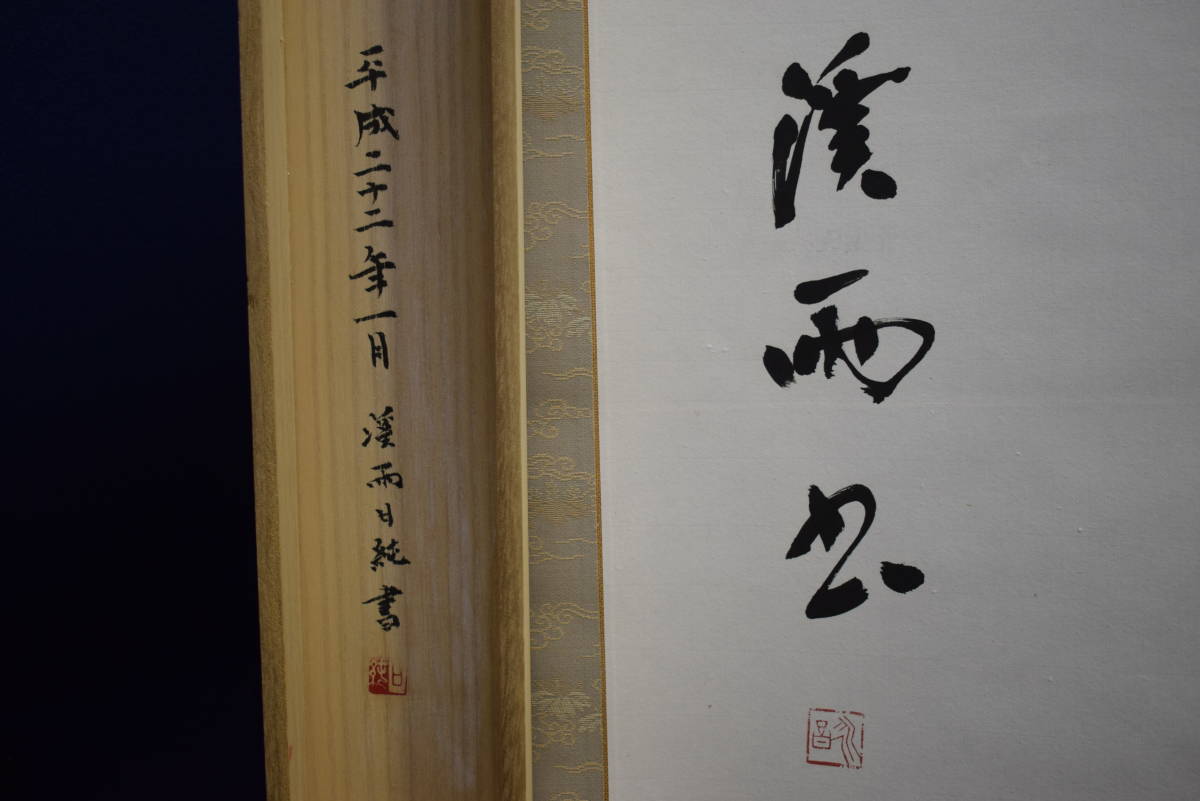 溪雨书
平成二十二年一月　溪雨日純書
日純